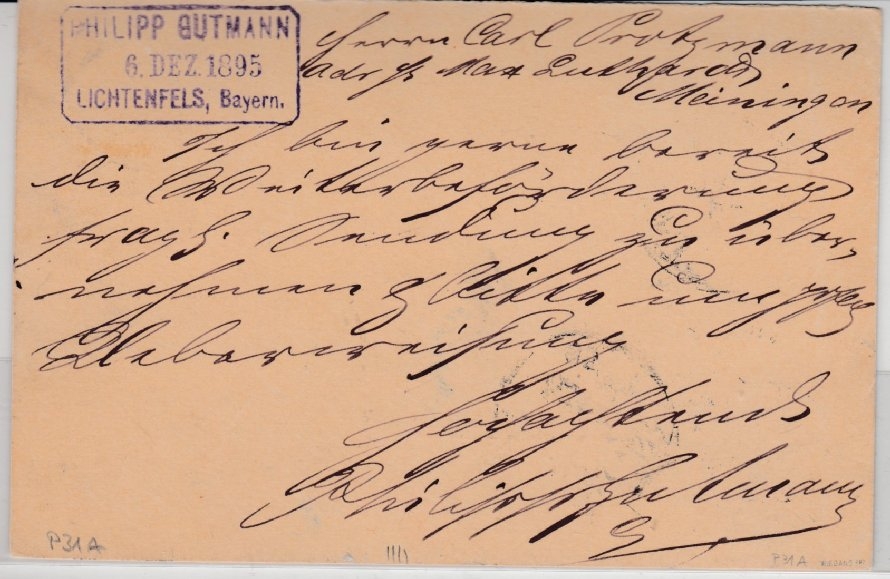 PHILIPP GUTMANN
6. DEZ. 1895
LICHTENFELS, Bayern.
Herrn Carl Protzmann
Meiningen
Ich bin gerne bereit
die Weiterbeförderung
fragl. Sendung zu über-
nehmen & bitte um
Ueberweisung
Hochachtend
Philipp Gutmann
P31A
P31A